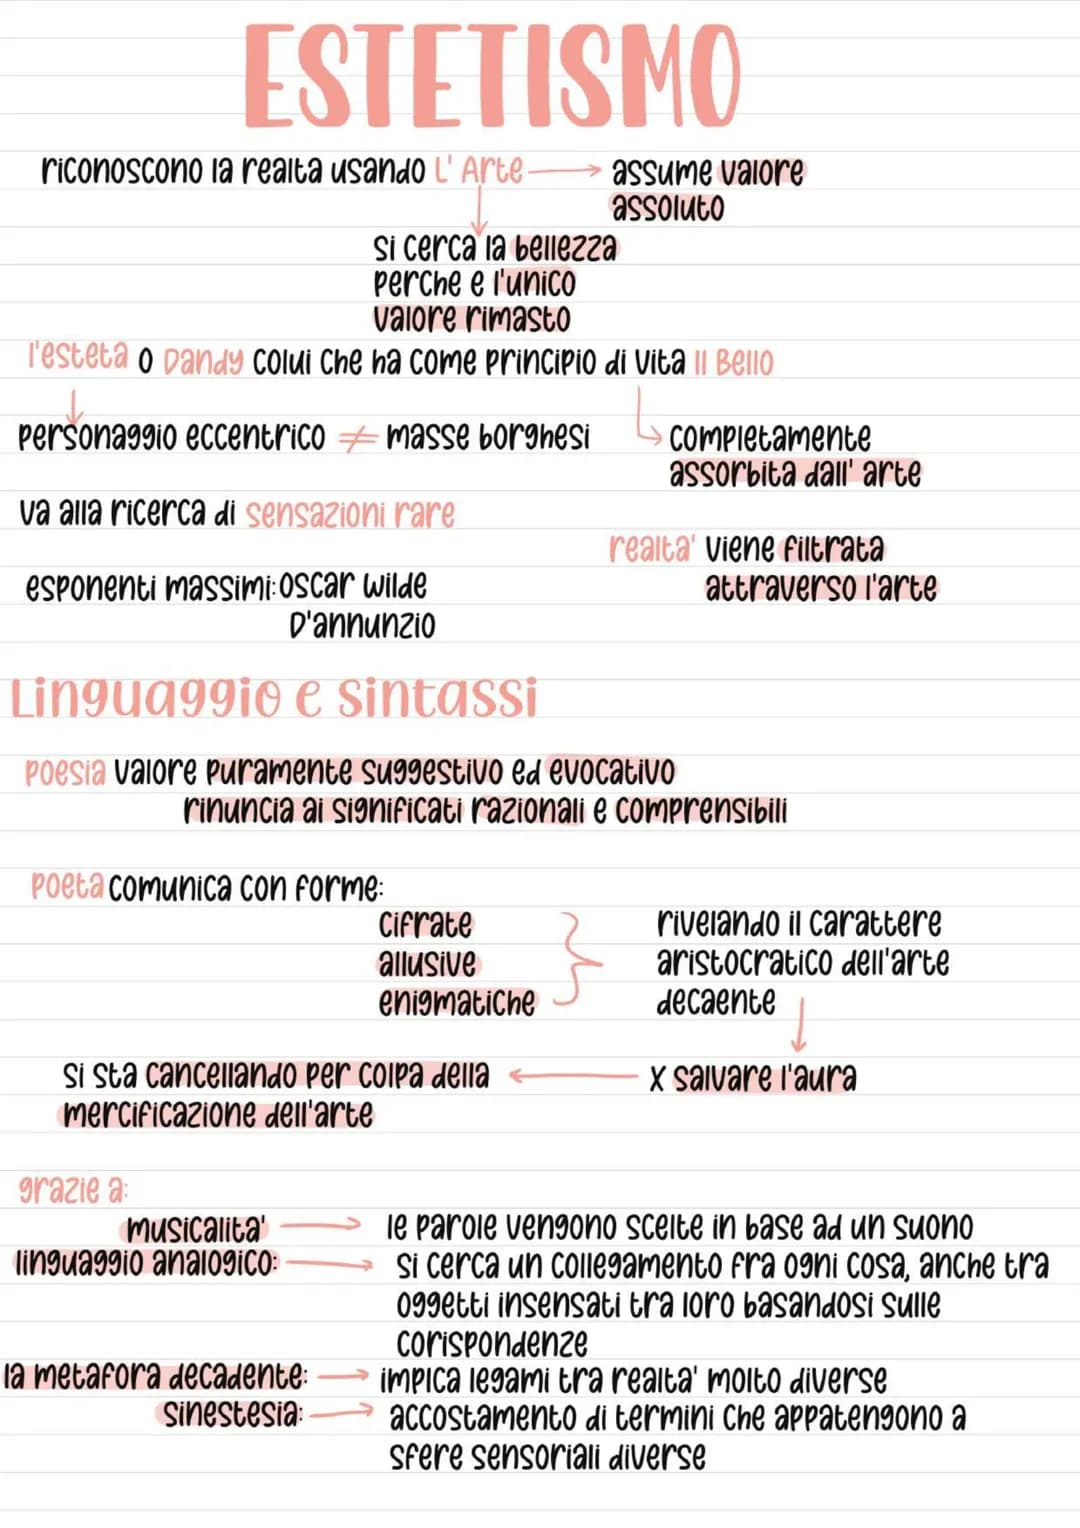 ESTETISMO
riconoscono la realta usando L' Arte → assume valore
assoluto
si cerca la bellezza
perche e l'unico
valore rimasto
l'esteta o Dandy colui che ha come principio di vita Il Bello
personaggio eccentrico ≠ masse borghesi
completamente
assorbita dall' arte
va alla ricerca di sensazioni rare
realta' viene filtrata
attraverso l'arte
esponenti massimi: Oscar wilde
D'annunzio
Linguaggio e sintassi
poesia valore puramente suggestivo ed evocativo
rinuncia ai significati razionali e comprensibili
poeta comunica con forme:
cifrate
allusive
enigmatiche
rivelando il carattere
aristocratico dell'arte
decaente
x salvare l'aura
si sta cancellando per colpa della
mercificazione dell'arte
grazie a:
musicalita' → le parole vengono scelte in base ad un suono
linguaggio analogico: → si cerca un collegamento fra ogni cosa, anche tra
oggetti insensati tra loro basandosi sulle
corispondenze
la metafora decadente: → impica legami tra realta' molto diverse
sinestesia: → accostamento di termini che appatengono a
sfere sensoriali diverse